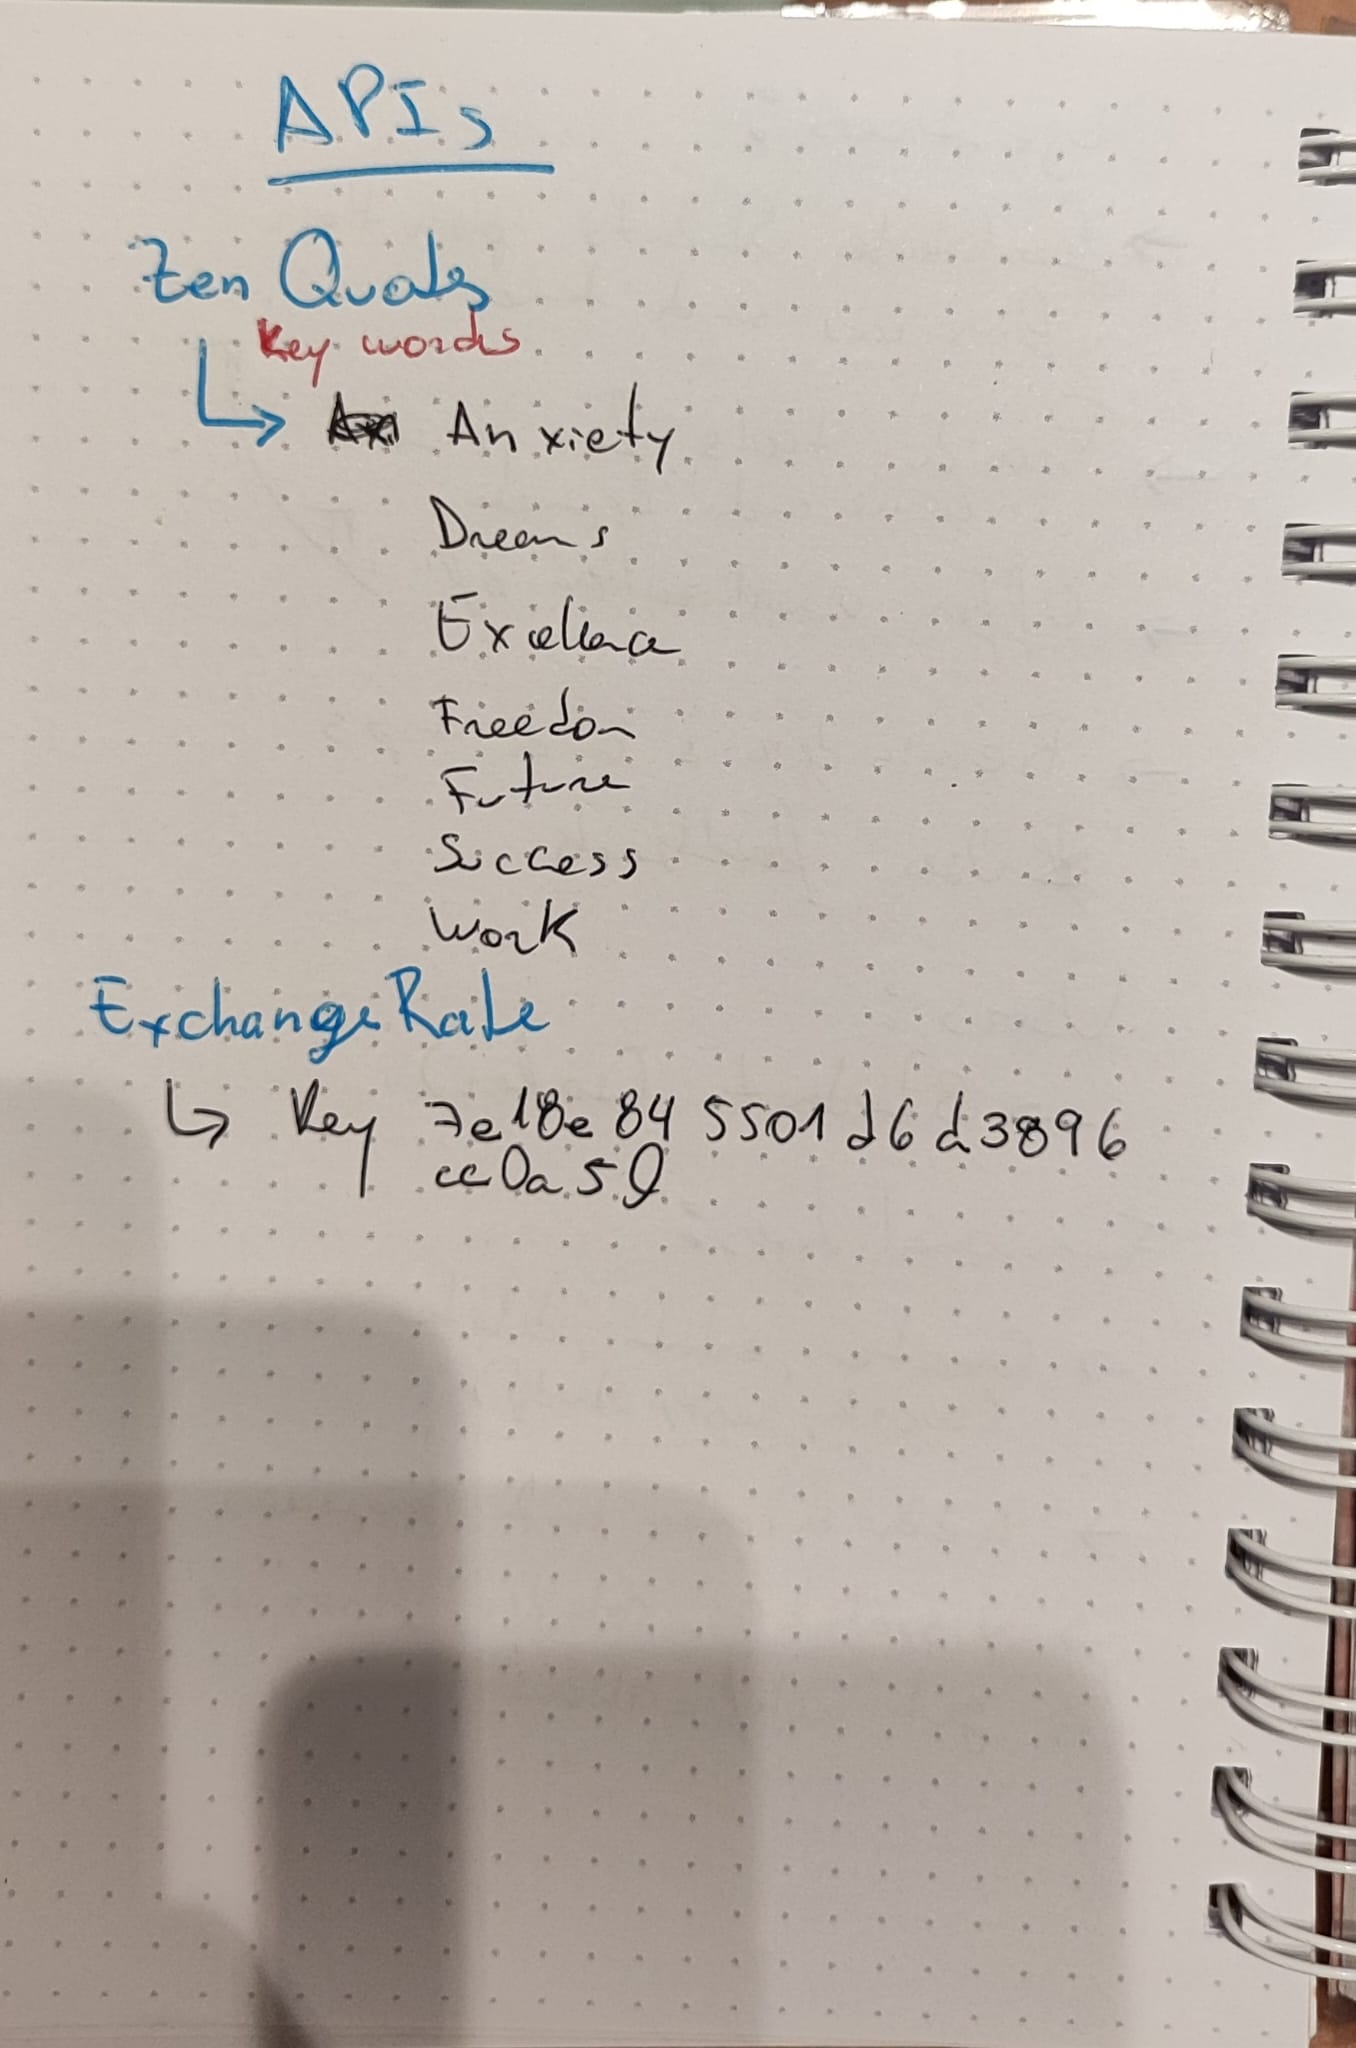 APIs
Zen Quotes
Key words
Anxiety
Dreams
Excellence
Freedom
Future
Success
Work
ExchangeRate
Key 7e18e845501d6d3896
cc0a50